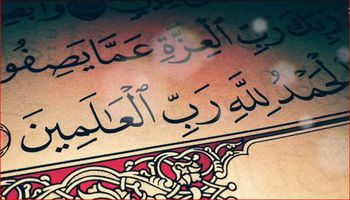 رَبِّكَ رَبِّ ٱلْعِزَّةِ عَمَّا يَصِفُو
لْحَمْدُ لِلَّهِ رَبِّ ٱلْعَٰلَمِينَ